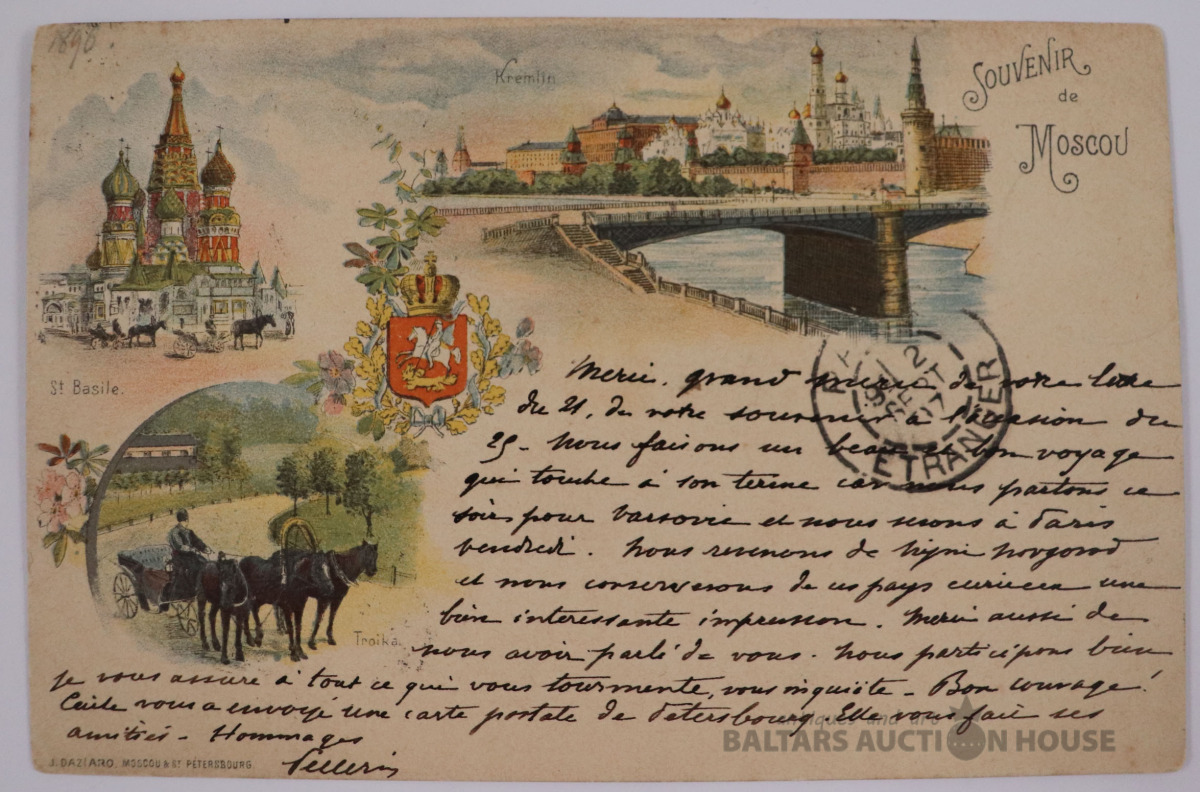 1898
Kremlin
SOUVENIR
de
MOSCOU
St Basile.
Troika
Merci, grand merci de votre lettre
du 21, de votre souvenir à l'occasion du
25 - Nous faisons un beau et bon voyage
qui touche à son terme car nous partons ce
soir pour Varsovie et nous serons à Paris
vendredi. Nous revenons de Nijni Novgorod
et nous conserverons de ces pays curieux une
bien intéressante impression. Merci aussi de
nous avoir parlé de vous. Nous participons bien
je vous assure à tout ce qui vous tourmente, vous inquiète - Bon courage!
Cécile vous a envoyé une carte postale de Pétersbourg. Elle vous fait ses
amitiés - Hommages
Pellerin
2
SEPT
97
ETRANGER
J. DAZIARO, MOSCOU & ST PÉTERSBOURG.
Antiques and art
BALTARS AUCTION HOUSE